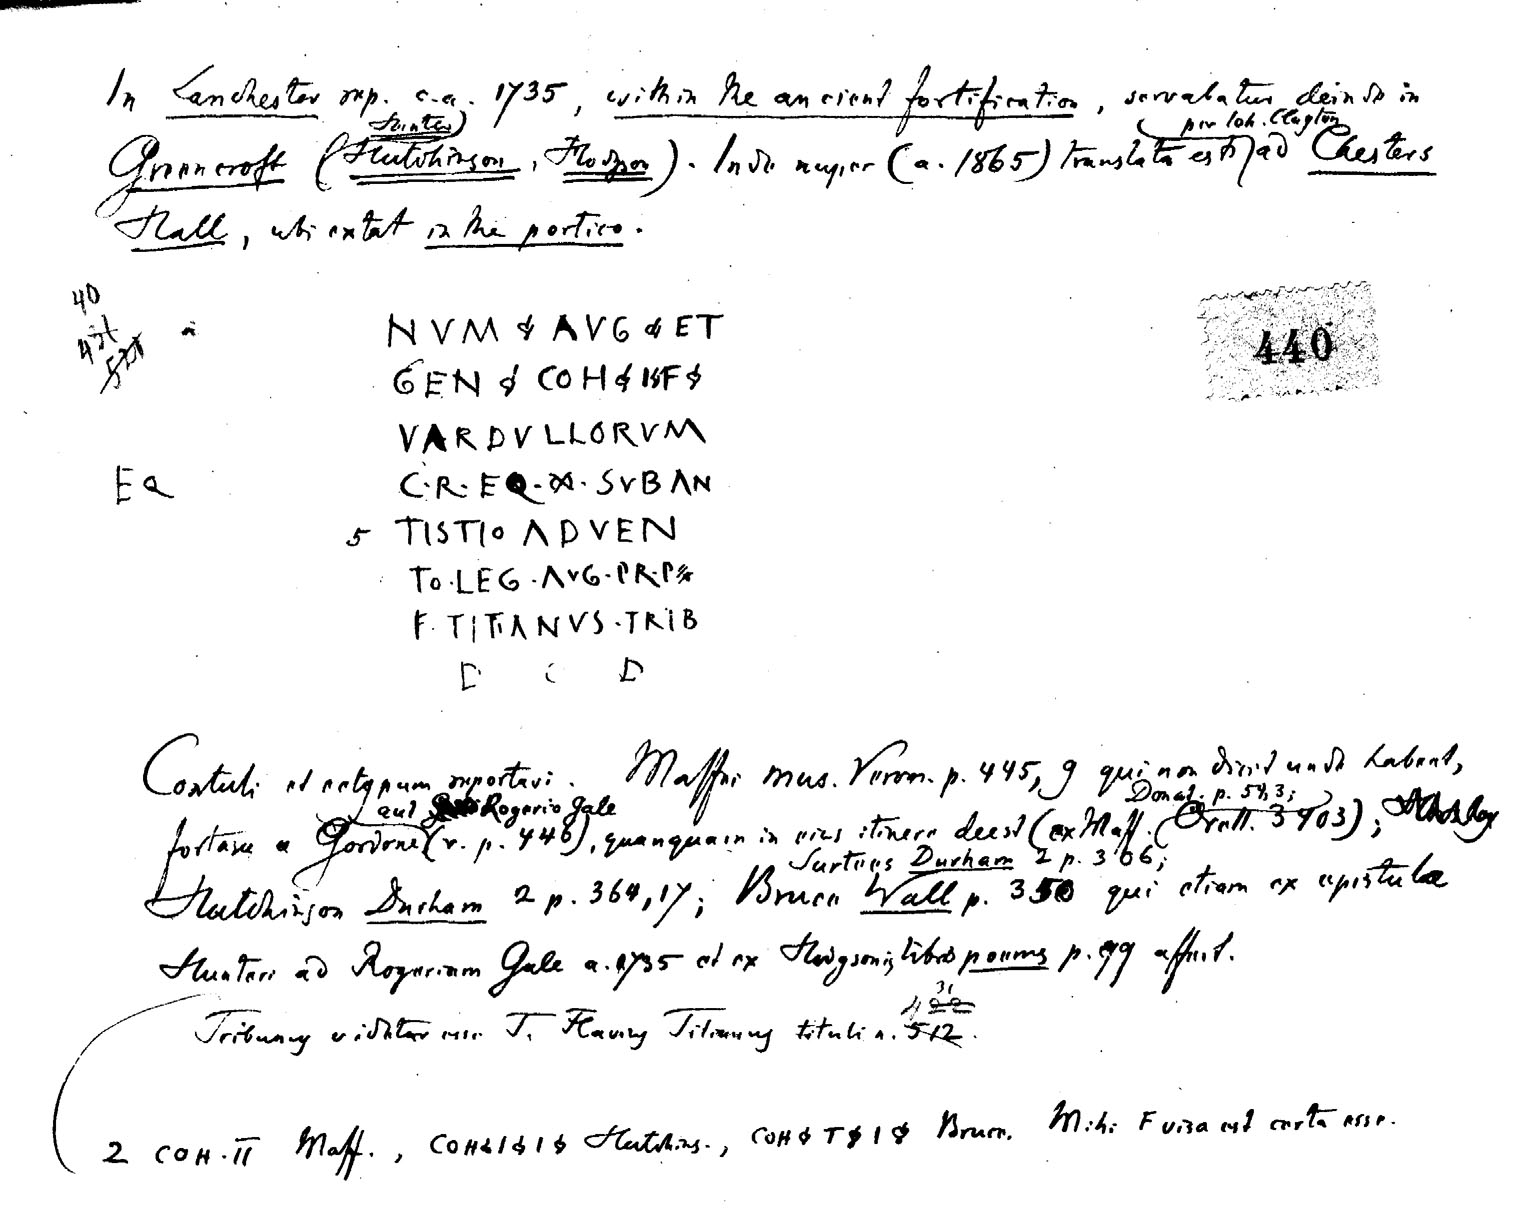 In Lanchester rep. c.a. 1735, within the ancient fortification, servabatur deinde in
Hunter per Joh. Clayton
Greencroft (Hutchinson, Hodgson). Inde nuper (a. 1865) translata est ad Chesters
Hall, ubi extat in the portico.
40
431
440
NVM & AVG & ET
GEN & COH & I & F &
VARDVLLORVM
EQ
C·R·EQ·∞·SVBAN
5 TISTIO ADVEN
TO·LEG·AVG·PR·P
F·TITIANVS·TRIB
D D
Contuli et ectypum reportavi. Maffei mus. Veron. p. 445, 9 qui non dicit unde habeat,
aut Rogerio Gale Donat. p. 54, 3;
fortasse a Gordone (v. p. 446), quanquam in eius itinere deest (ex Maff. Orell. 3403);
Surtees Durham 2 p. 306;
Hutchinson Durham 2 p. 364, 17; Bruce Wall p. 350 qui etiam ex epistula
Hunteri ad Rogerium Gale a. 1735 et ex Hodgsonis libro poems p. 99 affert.
31
Tribunus videtur esse T. Flavius Titianus tituli n. 512.
2 COH·II Maff., COH&I&I& Hutchins., COH&T&I& Bruce. Mihi F visa est certa esse.